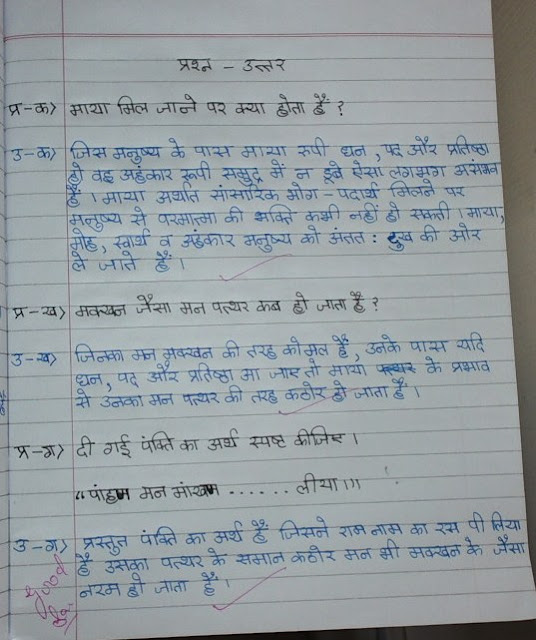 प्रश्न - उत्तर
प्र-क> माया मिल जाने पर क्या होता है ?
उ-क> जिस मनुष्य के पास माया रुपी धन, पद और प्रतिष्ठा
हो वह अहंकार रूपी समुद्र में न डूबे ऐसा लगभग असंभव
है । माया अर्थात सांसारिक भोग - पदार्थ मिलने पर
मनुष्य से परमात्मा की भक्ति कभी नहीं हो सकती । माया,
मोह, स्वार्थ व अहंकार मनुष्य को अंतत: दुख की ओर
ले जाते हैं ।
प्र-ख> मक्खन जैसा मन पत्थर कब हो जाता है ?
उ-ख> जिनका मन मक्खन की तरह कोमल है, उनके पास यदि
धन, पद और प्रतिष्ठा आ जाए तो माया के प्रभाव
से उनका मन पत्थर की तरह कठोर हो जाता है ।
प्र-ग> दी गई पंक्ति का अर्थ स्पष्ट कीजिए ।
"पांहन मन मांखन ...... लीया।।"
उ-ग> प्रस्तुत पंक्ति का अर्थ है जिसने राम नाम का रस पी लिया
है उसका पत्थर के समान कठोर मन भी मक्खन के जैसा
नरम हो जाता है ।
Good